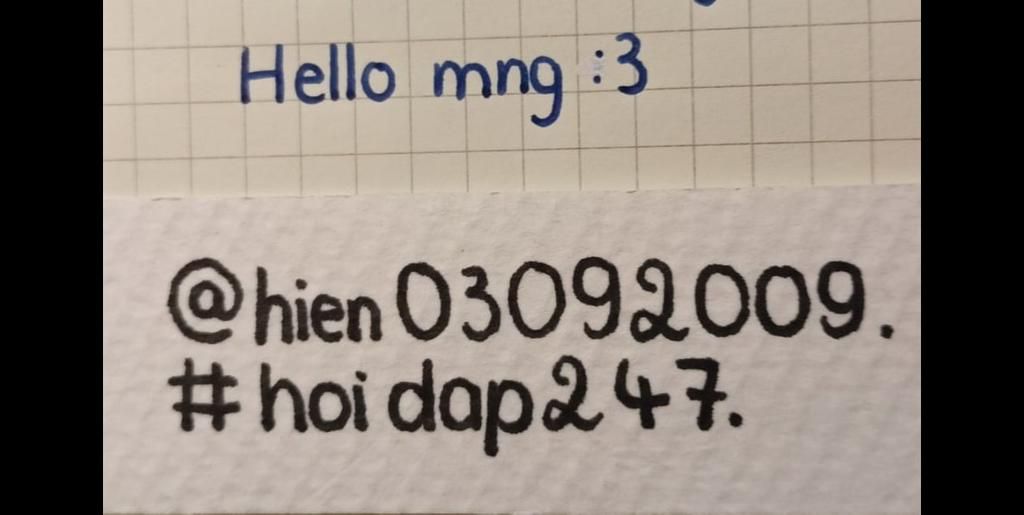 Hello mng :3
@hien03092009.
#hoidap247.